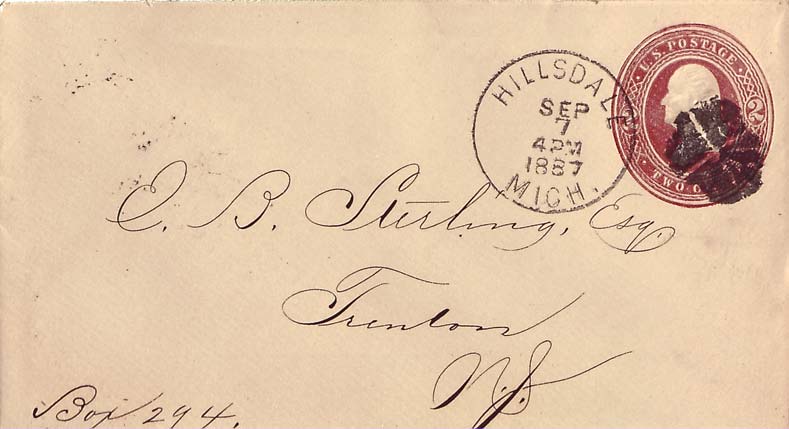 U.S. POSTAGE
2 2
TWO C
HILLSDALE
SEP
7
4PM
1887
MICH.
E. B. Sterling, Esq.
Trenton
N.J.
Box 294.